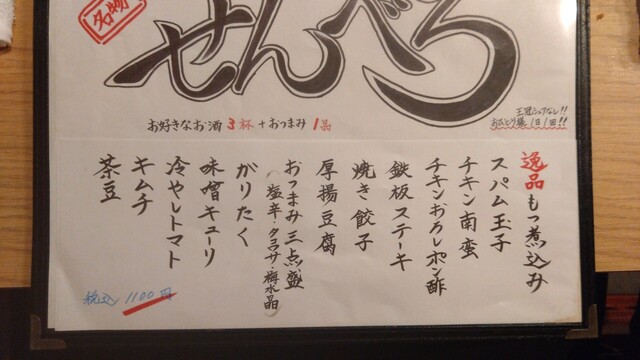 名物
せんべろ
お好きなお酒3杯+おつまみ1品
おひとり様1日1回!!
逸品もつ煮込み
スパム玉子
チキン南蛮
チキンおろしポン酢
鉄板ステーキ
焼き餃子
厚揚豆腐
おつまみ三点盛
(塩辛・タコワサ・梅水晶)
がりたく
味噌キューリ
冷やしトマト
キムチ
茶豆
税込 1100円